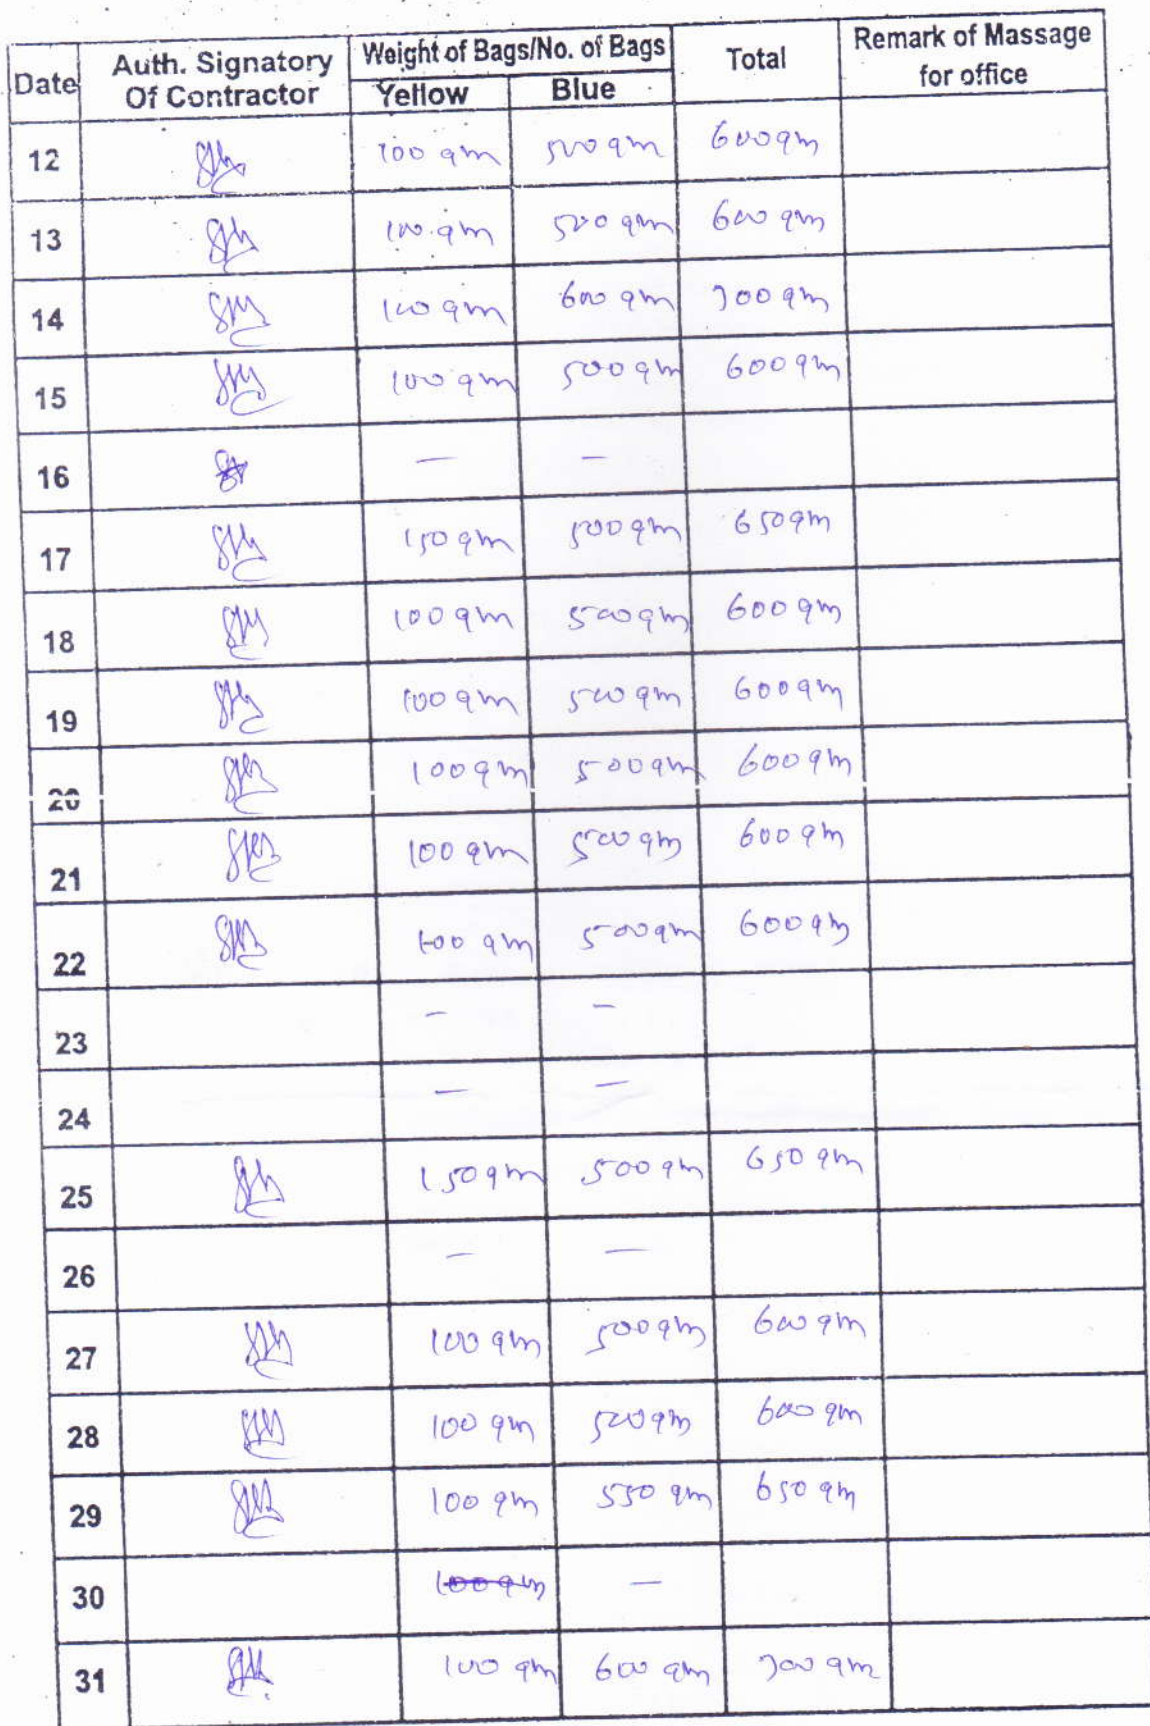 Date Auth. Signatory Of Contractor Weight of Bags/No. of Bags Total Remark of Massage for office
Yellow Blue
12 100 gm 500 gm 600 gm
13 100 gm 500 gm 600 gm
14 100 gm 600 gm 700 gm
15 100 gm 500 gm 600 gm
16 — —
17 150 gm 500 gm 650 gm
18 100 gm 500 gm 600 gm
19 100 gm 500 gm 600 gm
20 100 gm 500 gm 600 gm
21 100 gm 500 gm 600 gm
22 100 gm 500 gm 600 gm
23 — —
24 — —
25 150 gm 500 gm 650 gm
26 — —
27 100 gm 500 gm 600 gm
28 100 gm 500 gm 600 gm
29 100 gm 550 gm 650 gm
30 100 gm —
31 100 gm 600 gm 700 gm